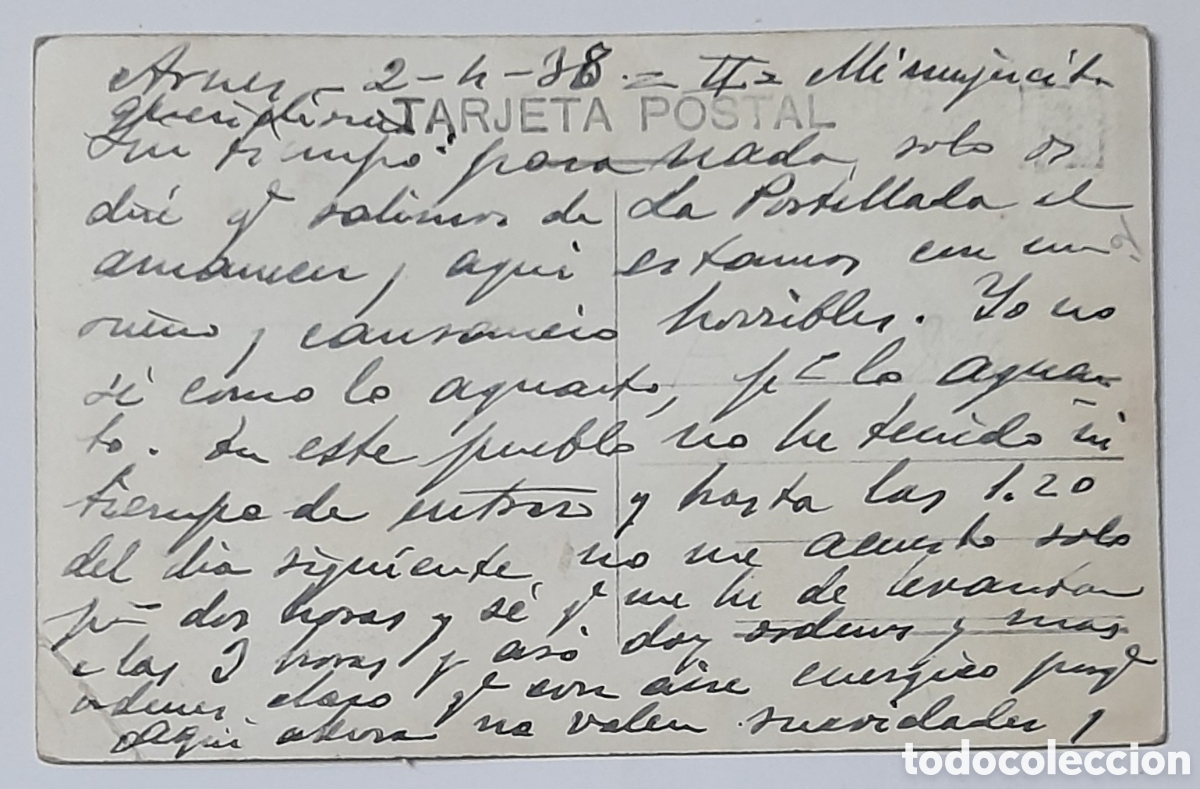 Arnes - 2-4-38. = II = Mi mujercita
queridísima:
TARJETA POSTAL
Sin tiempo para nada, solo os
diré q. salimos de La Portellada el
amanecer, y aqui estamos con un
sueño y cansancio horribles. Yo no
sé como lo aguanto, po lo aguan-
to. En este pueblo no he tenido ni
tiempo de entrar y hasta las 1.20
del dia siguiente, no me acuesto solo
pa dos horas y sé q. me he de levantar
a las 3 horas y doy ordenes y mas
ordenes claro q. con aire energico porq.
Aqui ahora no valen suavidades y
todocoleccion